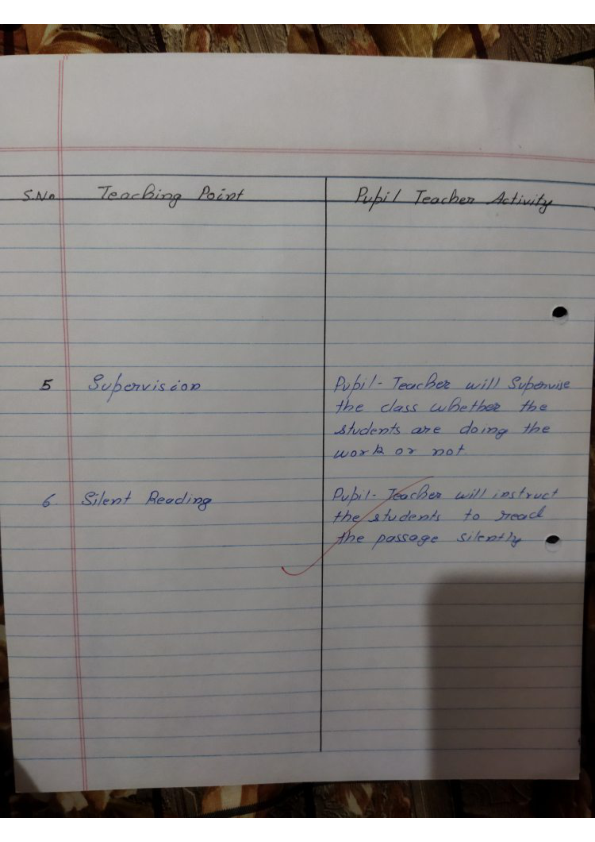 S.No Teaching Point Pupil Teacher Activity
5 Supervision Pupil-Teacher will Supervise
the class whether the
students are doing the
work or not
6. Silent Reading Pupil-Teacher will instruct
the students to read
the passage silently